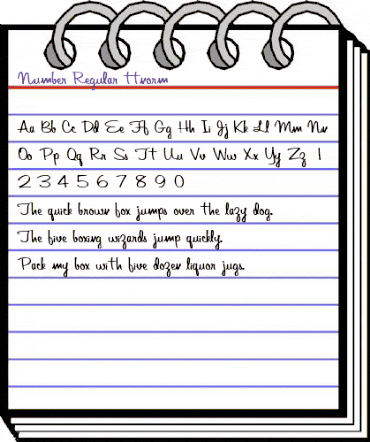 Number Regular Ttnorm
Aa Bb Cc Dd Ee Ff Gg Hh Ii Jj Kk Ll Mm Nn
Oo Pp Qq Rr Ss Tt Uu Vv Ww Xx Yy Zz 1
2 3 4 5 6 7 8 9 0
The quick brown fox jumps over the lazy dog.
The five boxing wizards jump quickly.
Pack my box with five dozen liquor jugs.